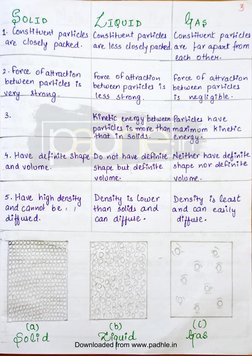 3
SOLID LIQUID GAS
1. Constituent particles Constituent particles Constituent particles
are closely packed. are less closely packed. are far apart from
each other.
2. Force of attraction Force of attraction Force of attraction
between particles is between particles is between particles
very strong. less strong. is negligible.
3. Kinetic energy between Particles have
particles is more than maximum kinetic
that in solids. energy.
4. Have definite shape Do not have definite Neither have definite
and volume. shape but definite shape nor definite
volume. volume.
5. Have high density Density is lower Density is least
and cannot be than solids and and can easily
diffused. can diffuse. diffuse.
(a) (b) (c)
Solid Liquid Gas
Downloaded from www.padhle.in